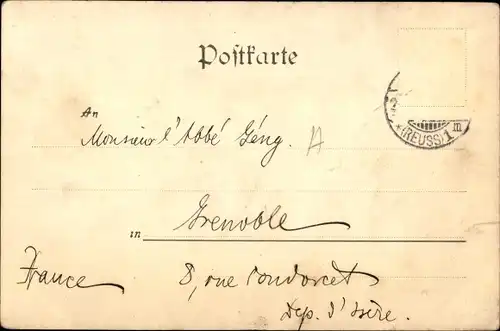 Postkarte
An
Monsieur l'Abbé Géng.
in Grenoble
France
8, rue Condorcet
Dép. d'Isère.
*(REUSS) 1 m